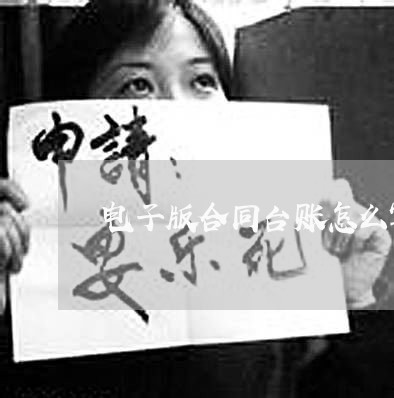 申請：
电子版合同台账怎么
安乐死